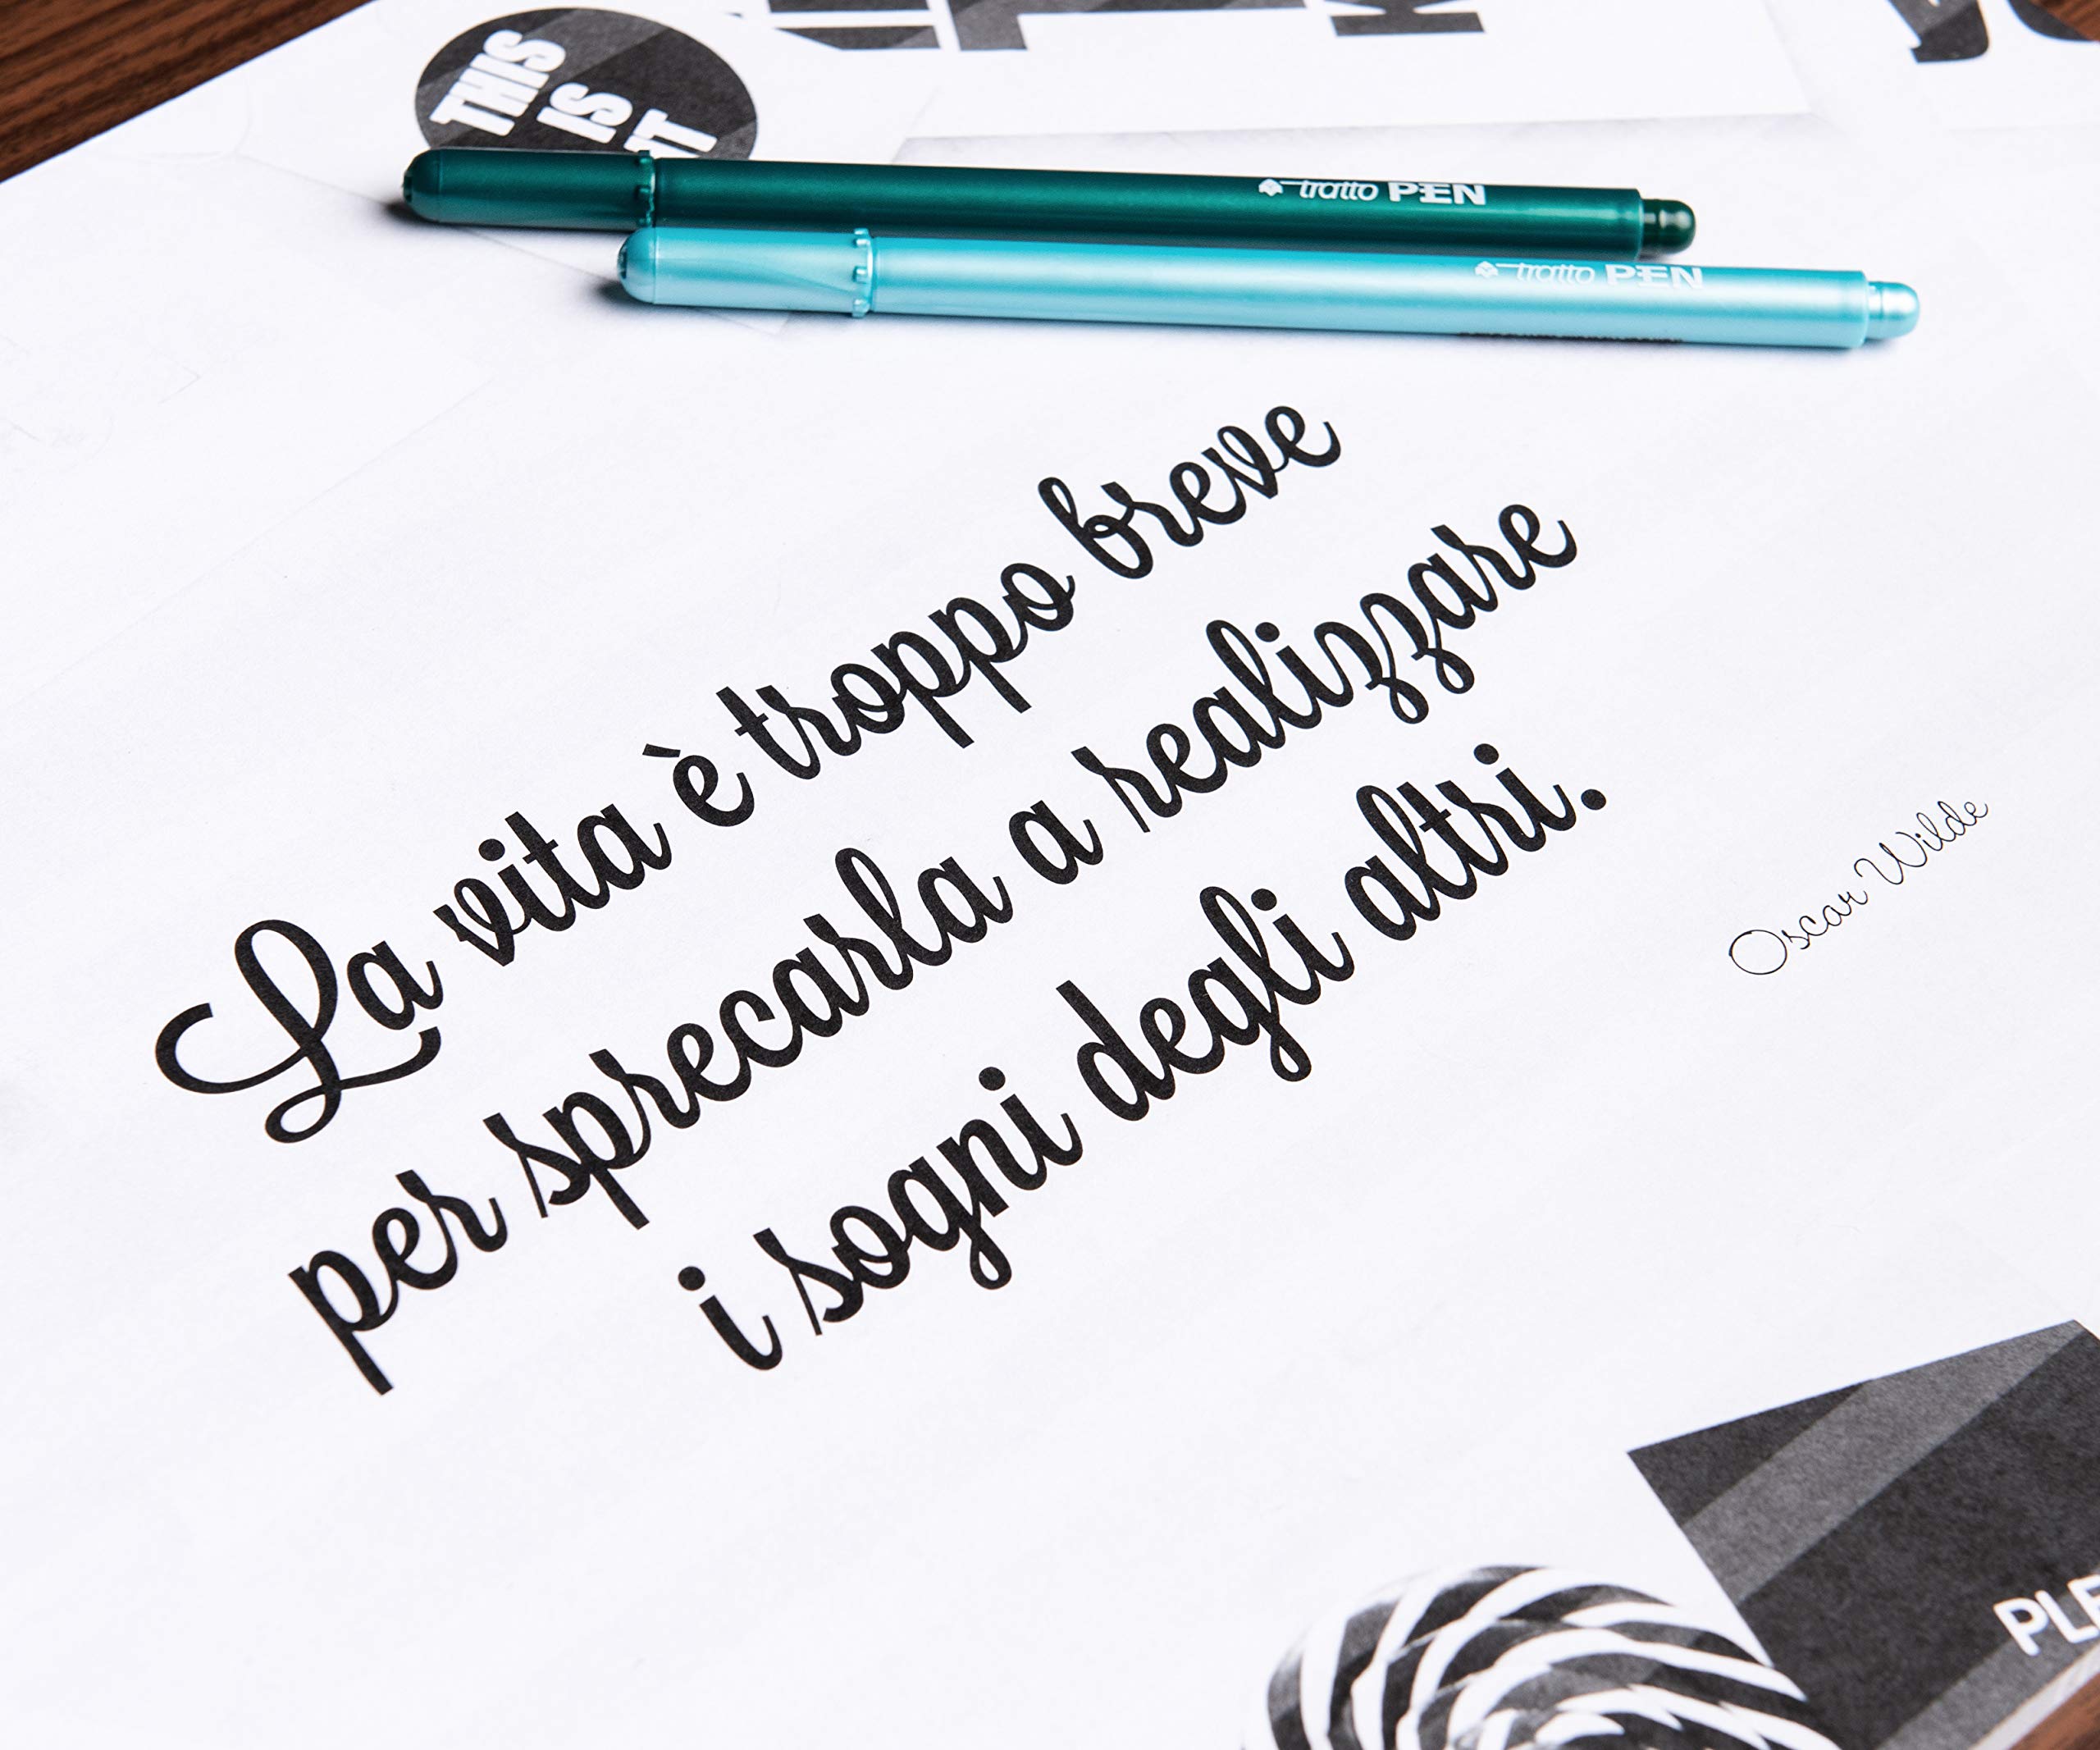 THIS
IS
IT
tratto PEN
tratto PEN
La vita è troppo breve
per sprecarla a realizzare
i sogni degli altri.
Oscar Wilde